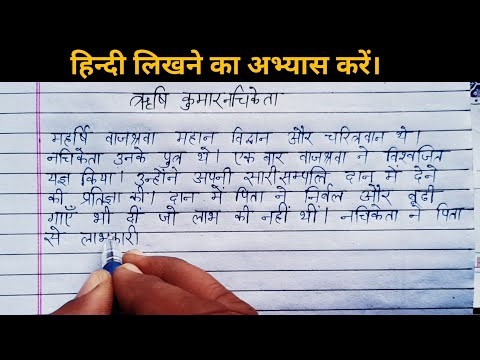 हिन्दी लिखने का अभ्यास करें।
ऋषि कुमारनचिकेता
महर्षि वाजश्रवा महान विद्वान और चरित्रवान थे।
नचिकेता उनके पुत्र थे। एक बार वाजश्रवा ने विश्वजित
यज्ञ किया। उन्होंने अपनी सारीसम्पत्ति दान में देने
की प्रतिज्ञा की। दान में पिता ने निर्बल और बूढी
गाएँ भी दीं जो लाभ की नहीं थीं। नचिकेता ने पिता
से लाभकारी